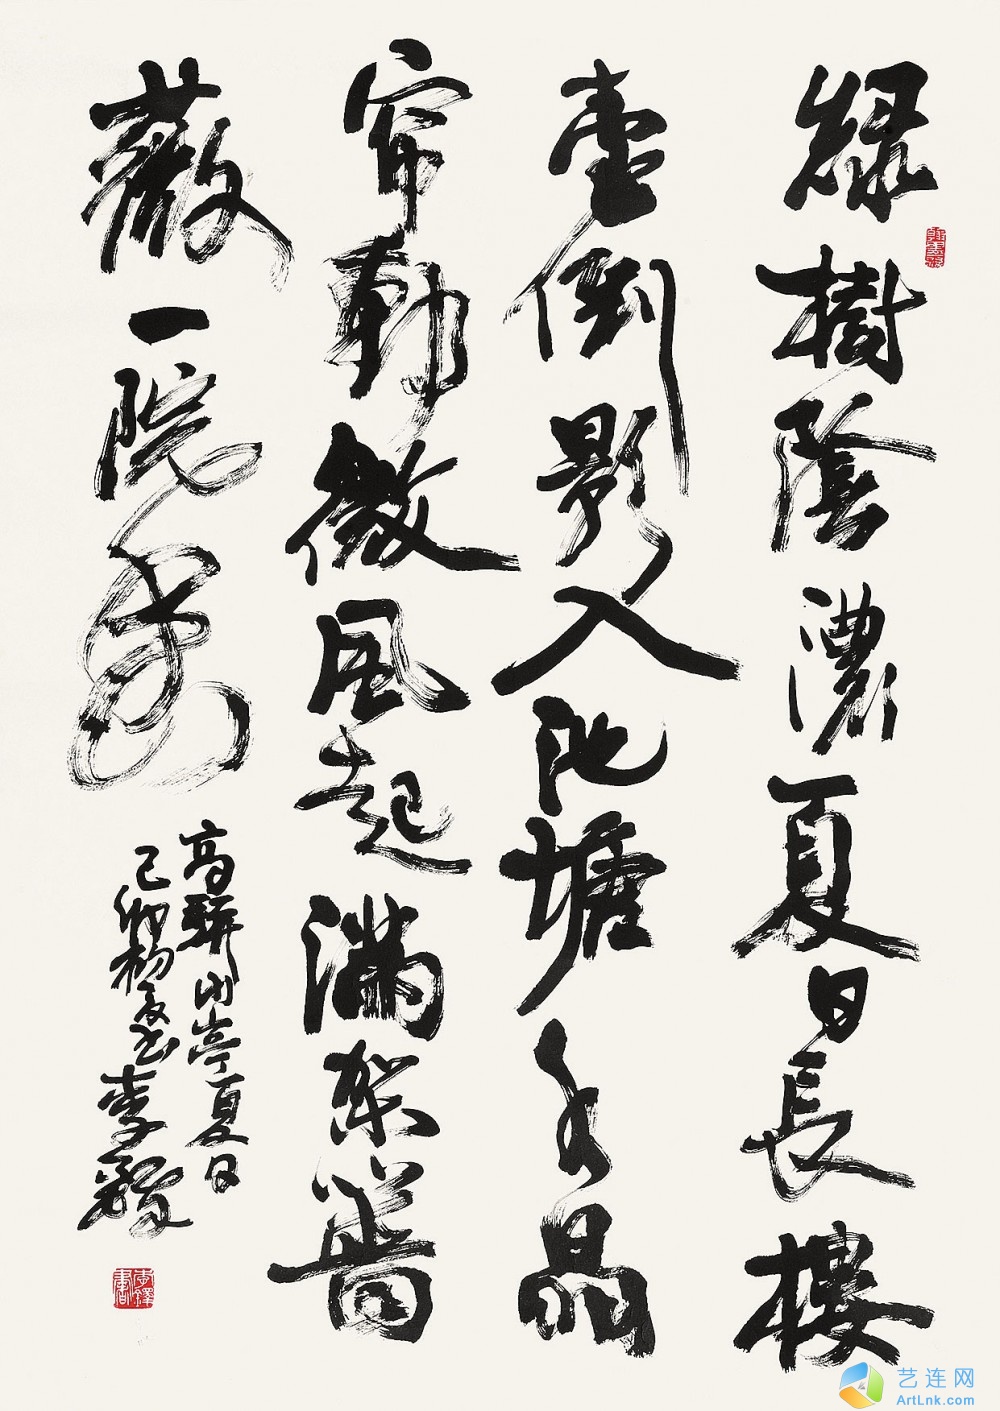 緑樹陰濃夏日長樓
臺倒影入池塘水晶
帘動微風起滿架薔
薇一院香
高駢山亭夏日
己卯李鐸
李鐸書
艺连网
ArtLnk.com